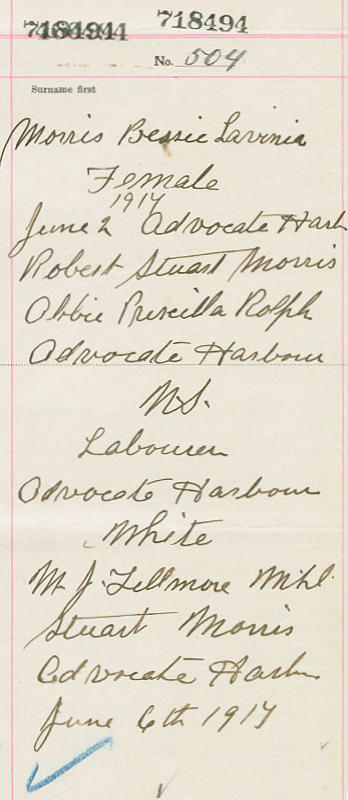 718494
No. 504
Surname first
Morris Bessie Lavinia
Female
1917
June 2 Advocate Harb
Robert Stuart Morris
Abbie Priscilla Rolph
Advocate Harbour
N.S.
Labourer
Advocate Harbour
White
M. J. Fillmore
Stuart Morris
Advocate Harbr
June 6th 1917